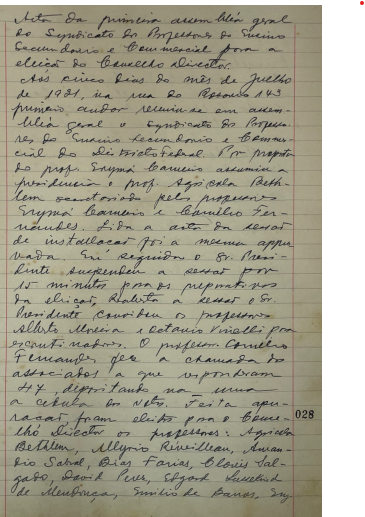 Acta da primeira assembléa geral
do Syndicato dos Professores do Ensino
Secundario e Commercial para a
eleição do Conselho Director.
Aos cinco dias do mês de Julho
de 1931, na rua do Rosario 143
primeiro andar reuniu-se em assem-
bléa geral o Syndicato dos Professo-
res do Ensino Secundario e Commer-
cial do Districto Federal. Por proposta
do prof. Erymá Carneiro assumiu a
presidencia o prof. Agricola Beth-
lem secretariado pelos professores
Erymá Carneiro e Cornélio Fer-
nandes. Lida a acta da sessão
de installação foi a mesma appro-
vada. Em seguida o Sr. Presi-
dente suspendeu a sessão por
15 minutos para os preparativos
da eleição. Reaberta a sessão o Sr.
Presidente convidou os professores
Alberto Moreira e Octavio Vinelli para
escrutinadores. O professor Cornélio
Fernandes fez a chamada dos
associados a que responderam
47, depositando na urna
a cedula dos votos. Feita apu-
ração foram eleitos para o Conse-
lho Director os professores: Agricola
Bethlem, Alleyrio Reveilleau, Aman-
dio Sobral, Dias Farias, Clovis Sal-
gado, David Peres, Edgard
de Mendonça, Emilio de Barros, Ery
028